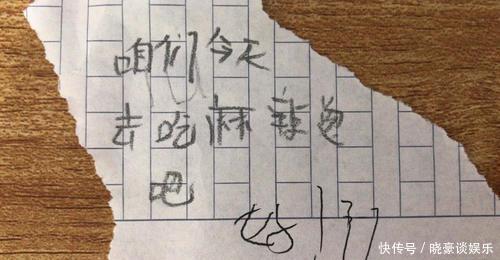 咱们今天
去吃麻辣
吧
快传号 / 晓豪谈娱乐